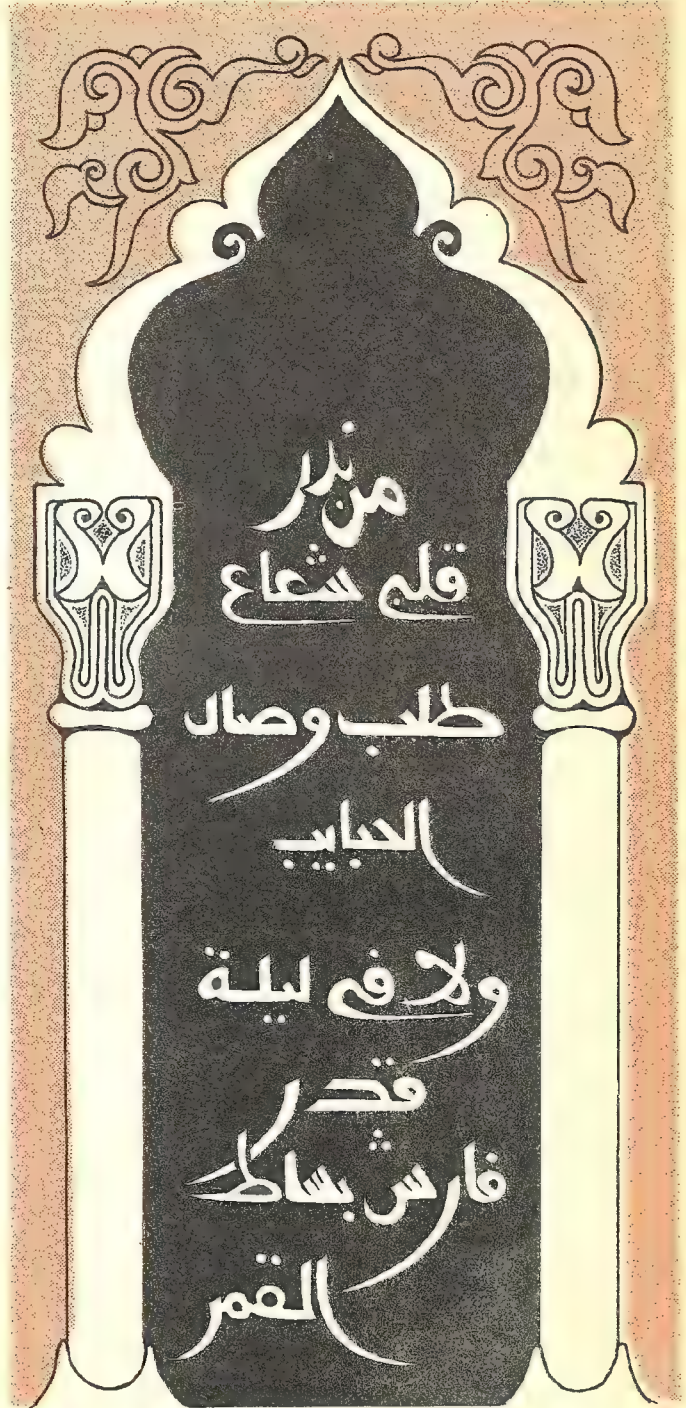 من ندر
قلبى شعاع
طلب وصال
الحبايب
ولا فى ليلة
قدر
فارش بساط
القمر